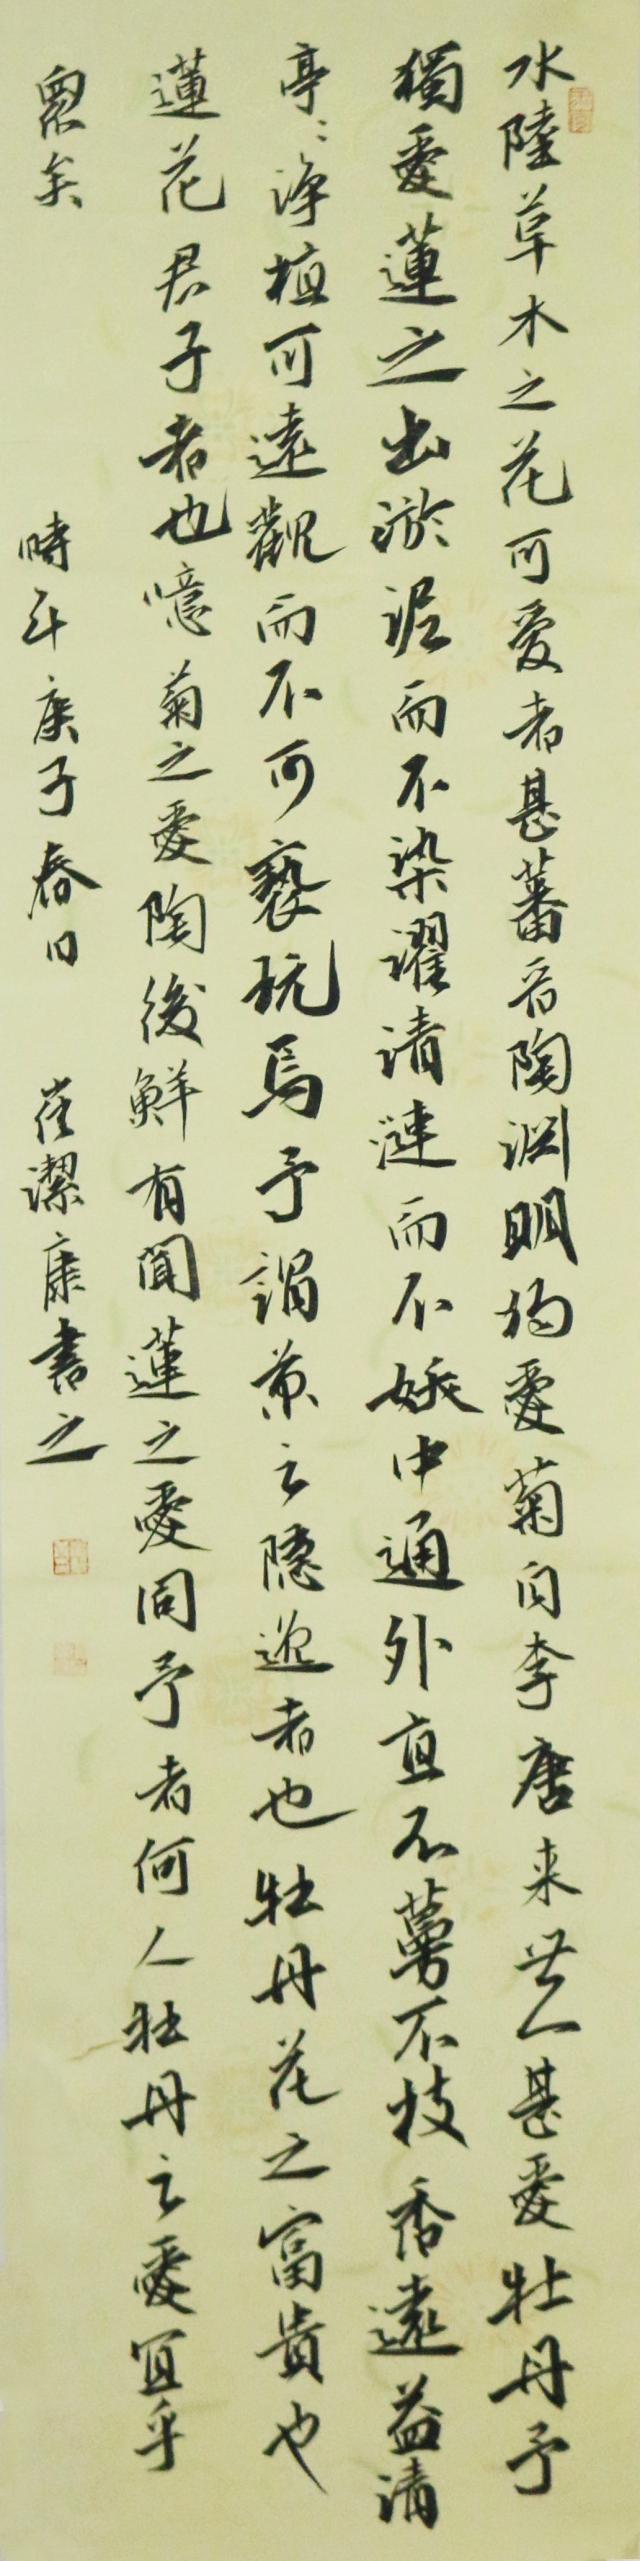 水陸草木之花可愛者甚蕃晋陶淵明独愛菊自李唐来世人甚愛牡丹予
獨愛蓮之出淤泥而不染濯清漣而不妖中通外直不蔓不枝香遠益清
亭〻淨植可遠觀而不可褻玩焉予謂菊之隱逸者也牡丹花之富貴也
蓮花君子者也噫菊之愛陶後鮮有聞蓮之愛同予者何人牡丹之愛宜乎
衆矣 時年庚子春日 崔潔康書之